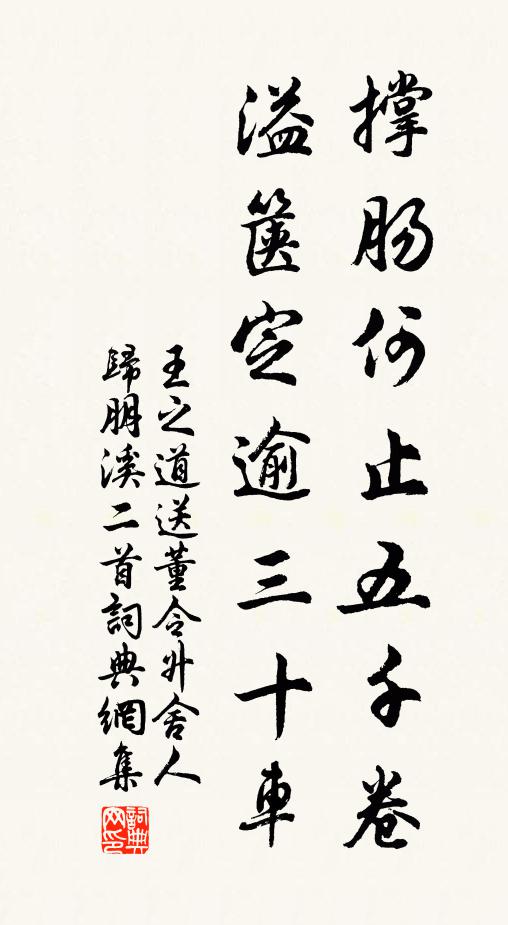 撑腸何止五千卷
溢篋定逾三十車
王之道送董令升舍人
歸朋溪二首詞典網集
詞典
网印